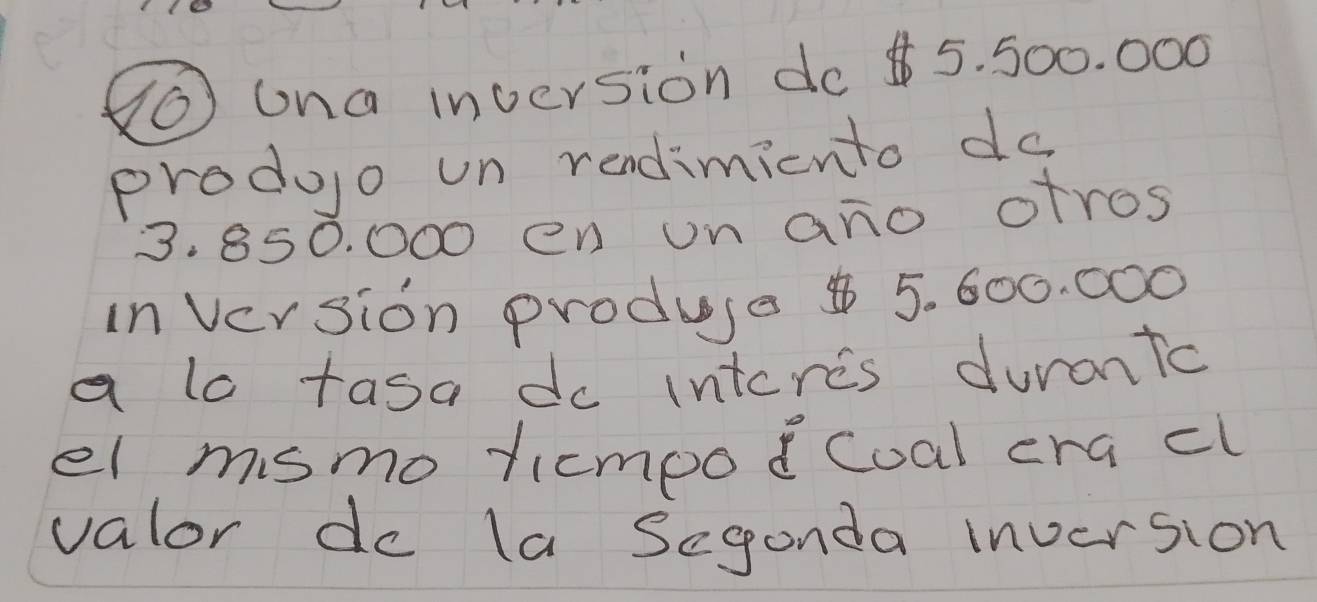 10 Una inversión de $ 5.500.000
produjo un rendimiento de
3.850.000 en un año otros
inversión produjo $ 5.600.000
a la tasa de interés durante
el mismo tiempo ¿Cual era el
valor de la Segunda inversion